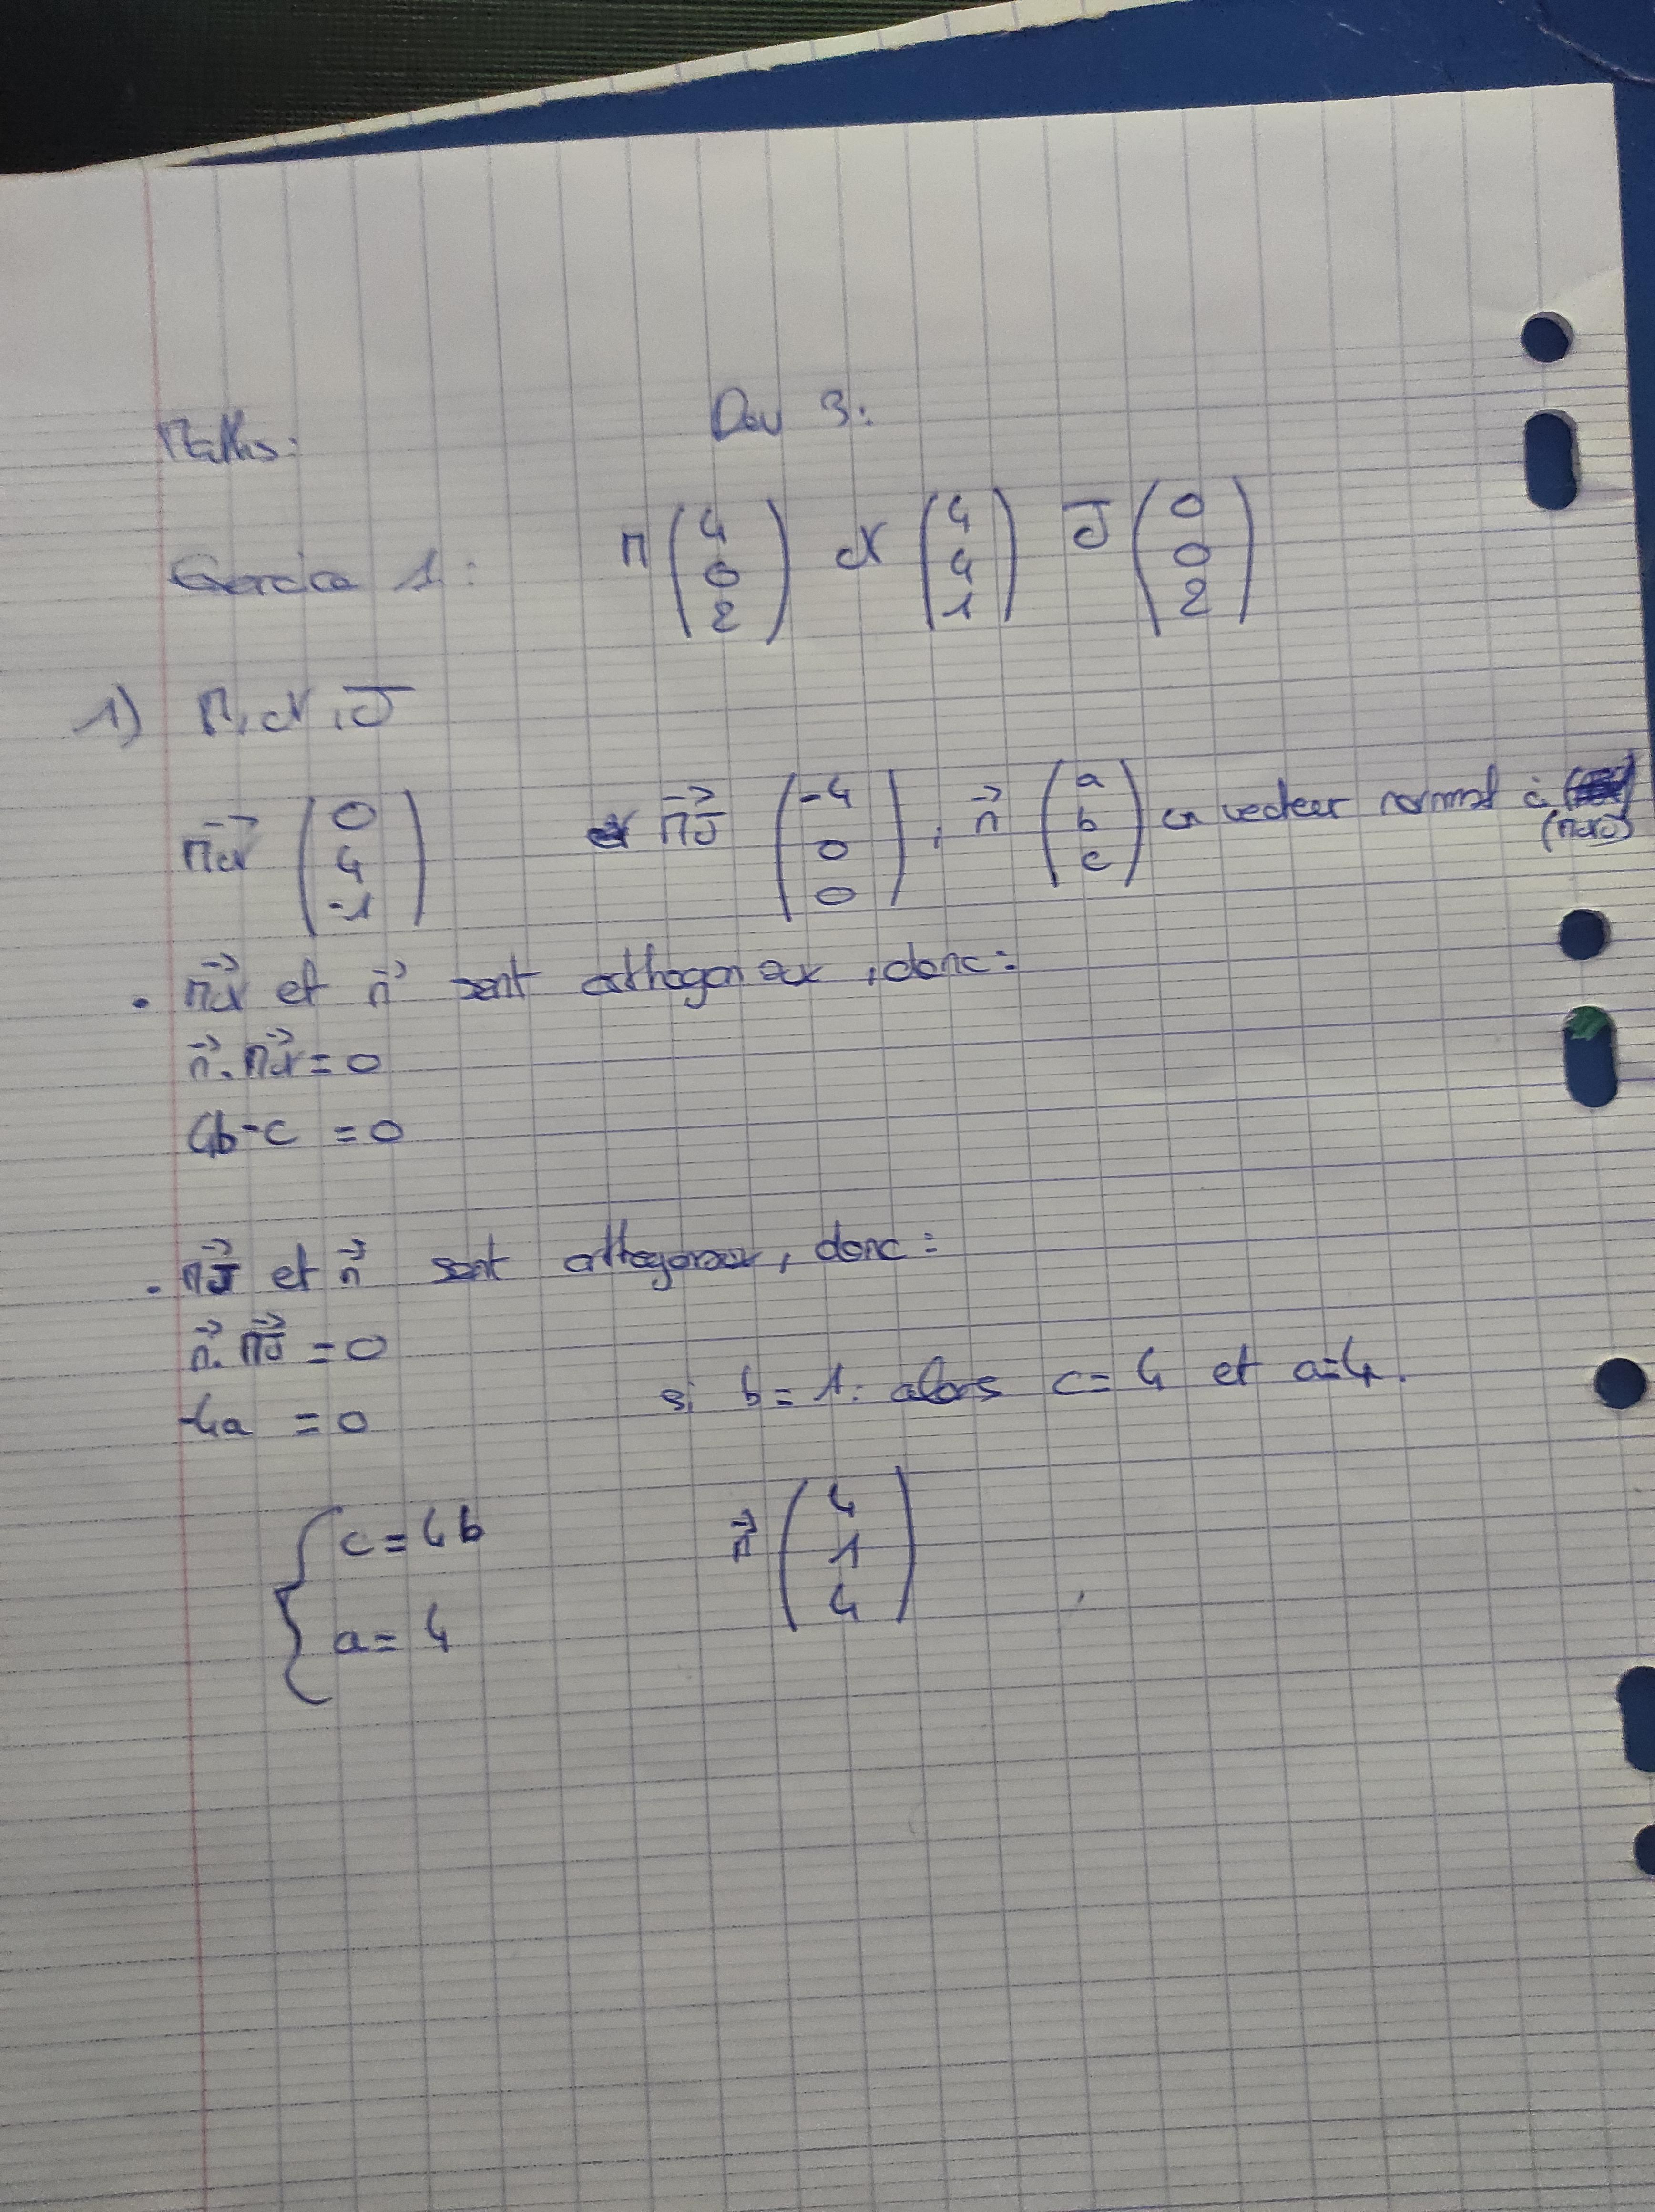 Maths: Dev 3:
Exercice 1: M (4 0 2) N (4 4 1) J (0 0 2)
1) M, N, J
MN→ (0 4 -1) et MJ→ (-4 0 0), n→ (a b c) un vecteur normal à (MNJ)
• MN→ et n→ sont orthogonaux, donc:
n→.MN→=0
4b-c =0
• MJ→ et n→ sont orthogonaux, donc:
n→.MJ→ =0
-4a =0
si b=1: alors c=4 et a=4.
{ c=4b
a=4
n→ (4 1 4)